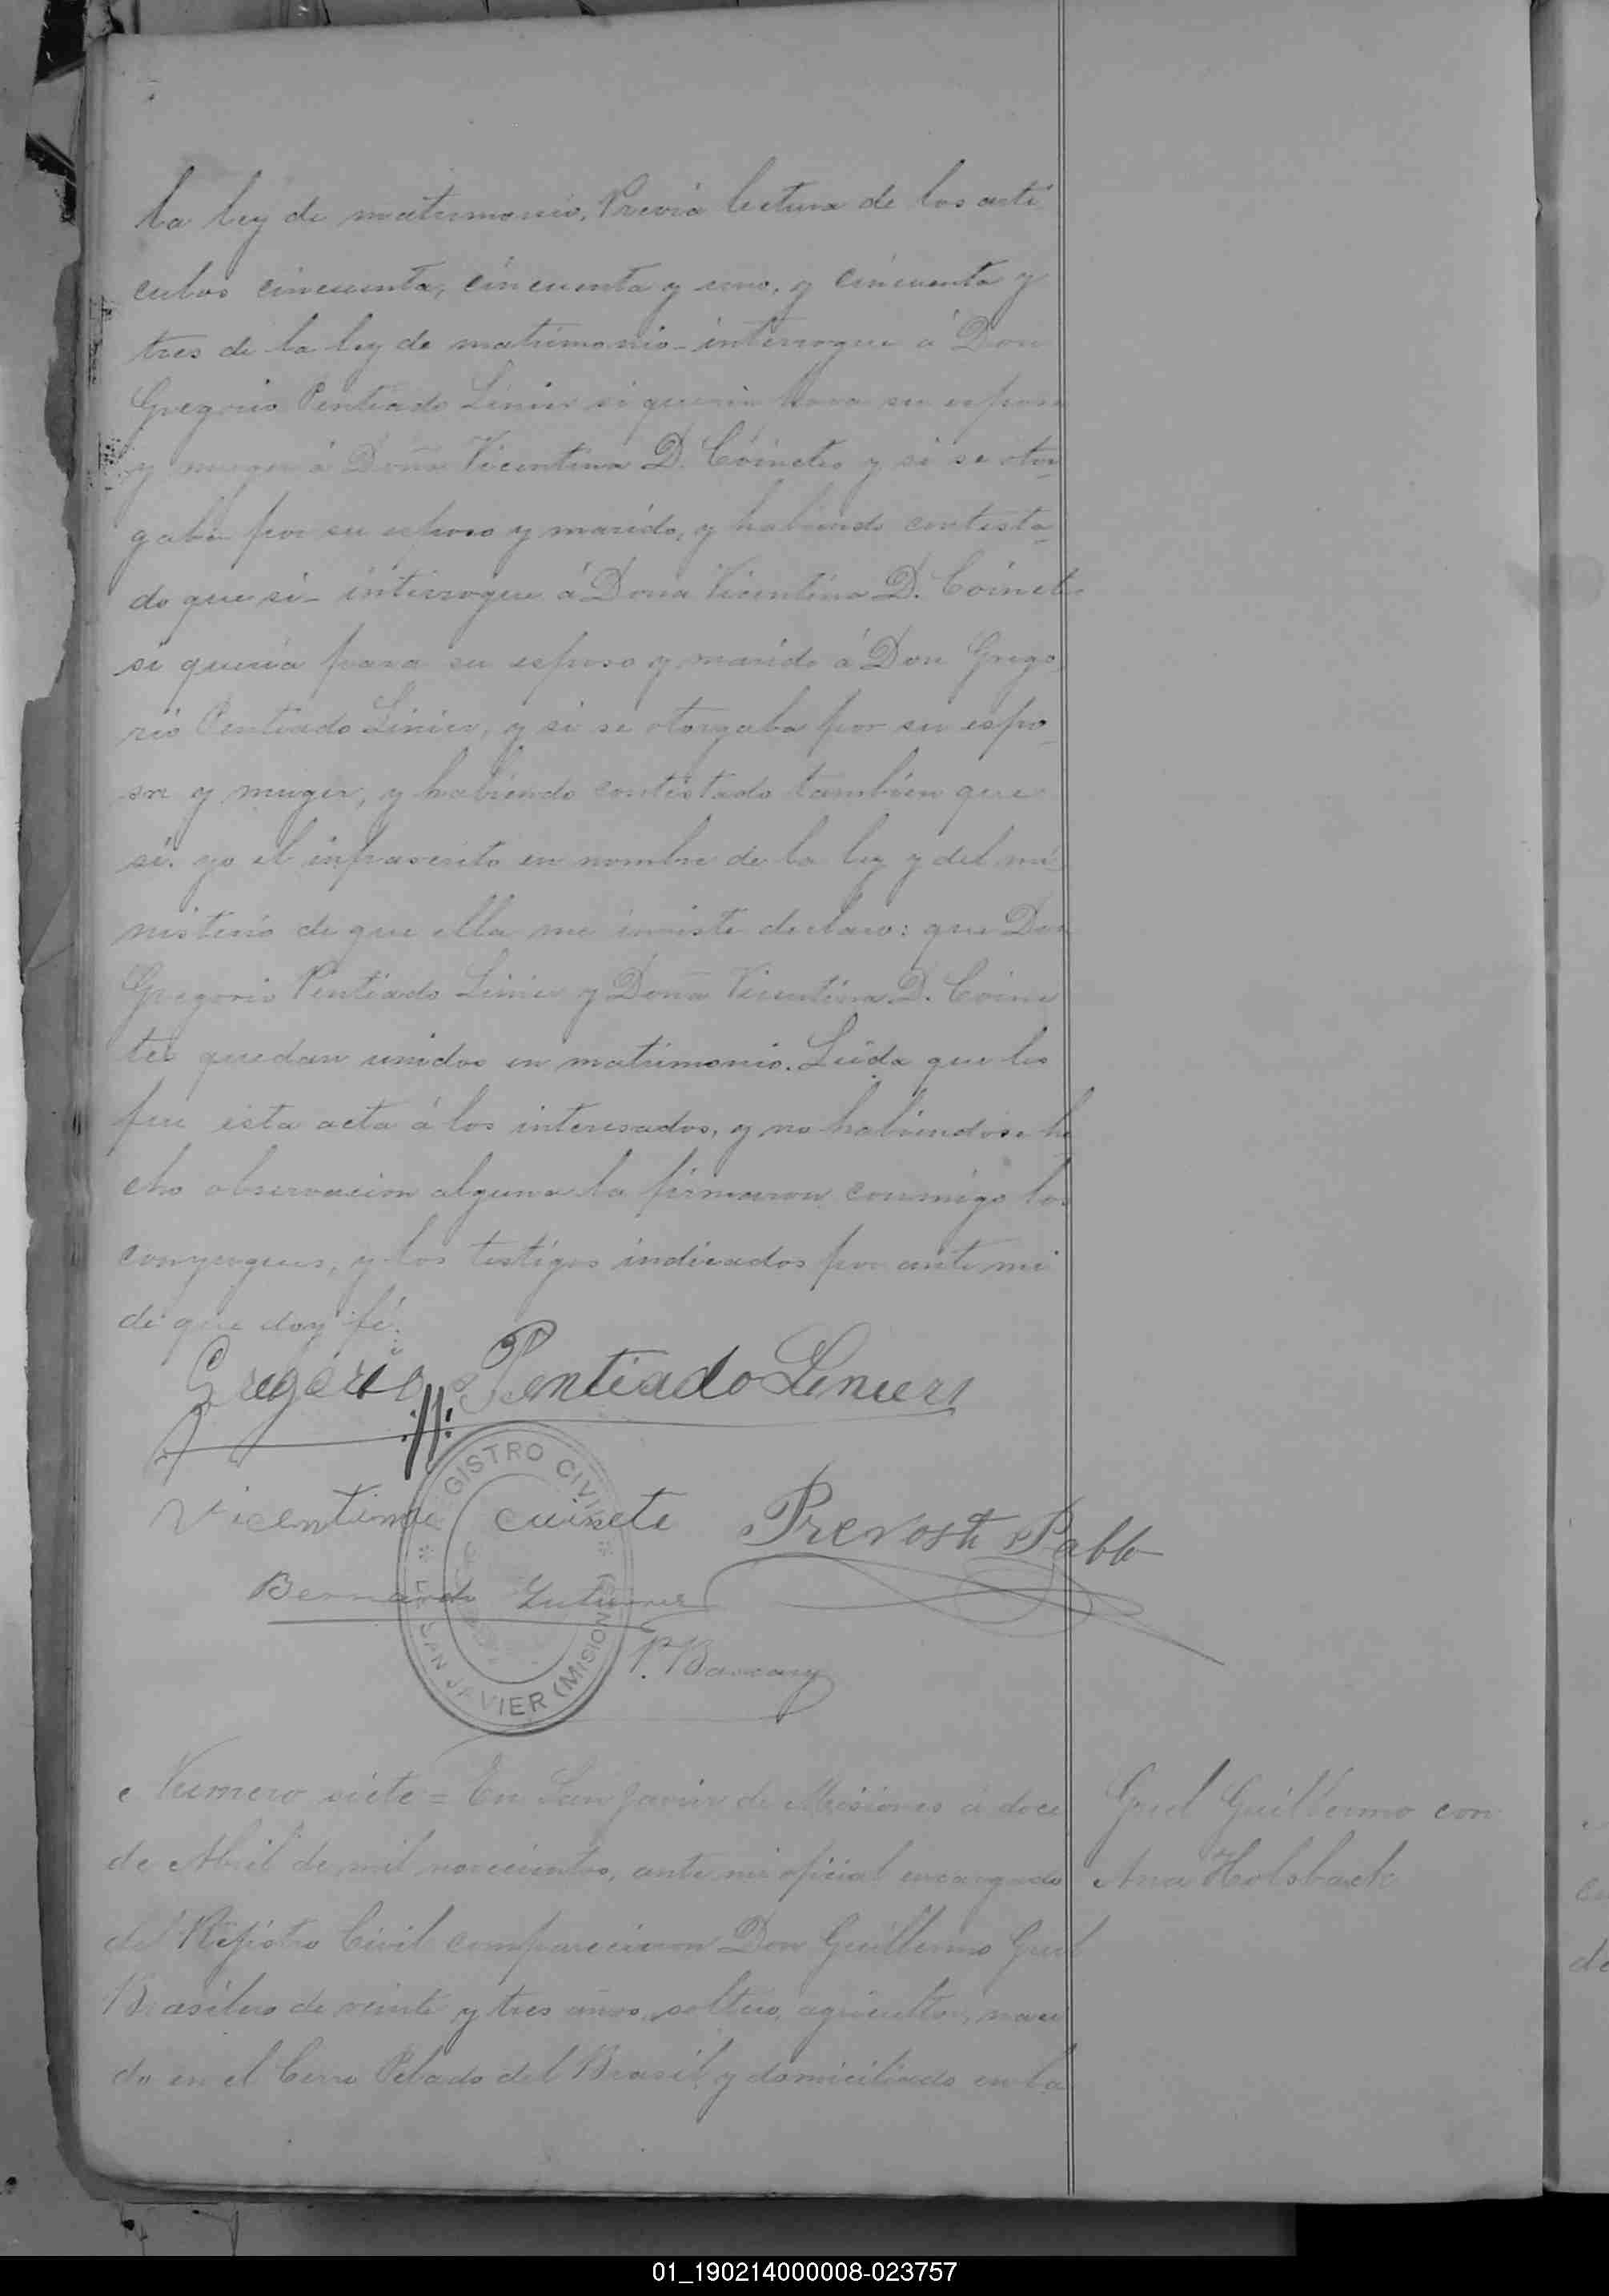 la ley de matrimonio. Previa lectura de los arti
culos cincuenta, cincuenta y uno, y cincuenta y
tres de la ley de matrimonio - interrogue á Don
Gregorio Pentiado Linier si queria para su esposa
y muger á Doña Vicentina D. Cóinete y si se otor_
gaba por su esposo y marido, y habiendo contesta_
do que si - interrogue á Dona Vicentina D. Coinete
si queria para su esposo y marido á Don Grego
rio Pentiado Linier, y si se otorgaba por su espo_
sa y muger, y habiendo contestado tambien que
si. yo el infrascrito en nombre de la ley y del mi_
nisterio de que ella me inviste declaro: que Don
Gregorio Pentiado Linier y Doña Vicentina D. Coine
te quedan unidos en matrimonio. Leida que les
fue esta acta á los interesados, y no habiendose he
cho observacion alguna la firmaron conmigo los
conyugues, y los testigos indicados por ante mi
de que doy fé.
Gregorio Pentiado Liniers
Vicentina cuinete Prevost Pablo
Bernardo Gutierrez
REGISTRO CIVIL
SAN JAVIER (MISIONES)
Numero siete = En San Javier de Misiones á doce
de Abril de mil novecientos, ante mi oficial encargado
del Rejistro Civil comparecieron Don Guillermo Grel
Brasilero de veinte y tres años, soltero, agricultor, naci
do en el Cerro Pelado del Brasil y domiciliado en la
Grel Guillermo con
Ana Holsback
01_190214000008-023757